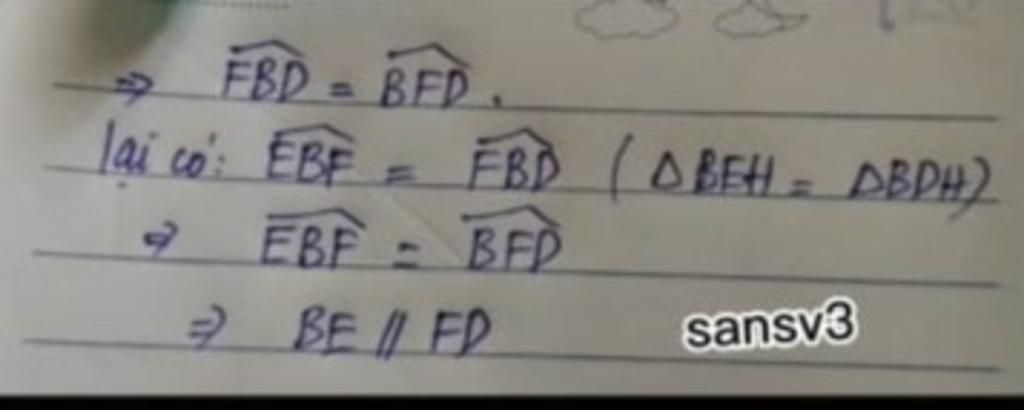 ⇒ $\widehat{FBD} = \widehat{BFD}$.
lại có: $\widehat{EBF} = \widehat{FBD}$ (ΔBEH = ΔBDH)
⇒ $\widehat{EBF} = \widehat{BFD}$
⇒ BE // FD
sansv3